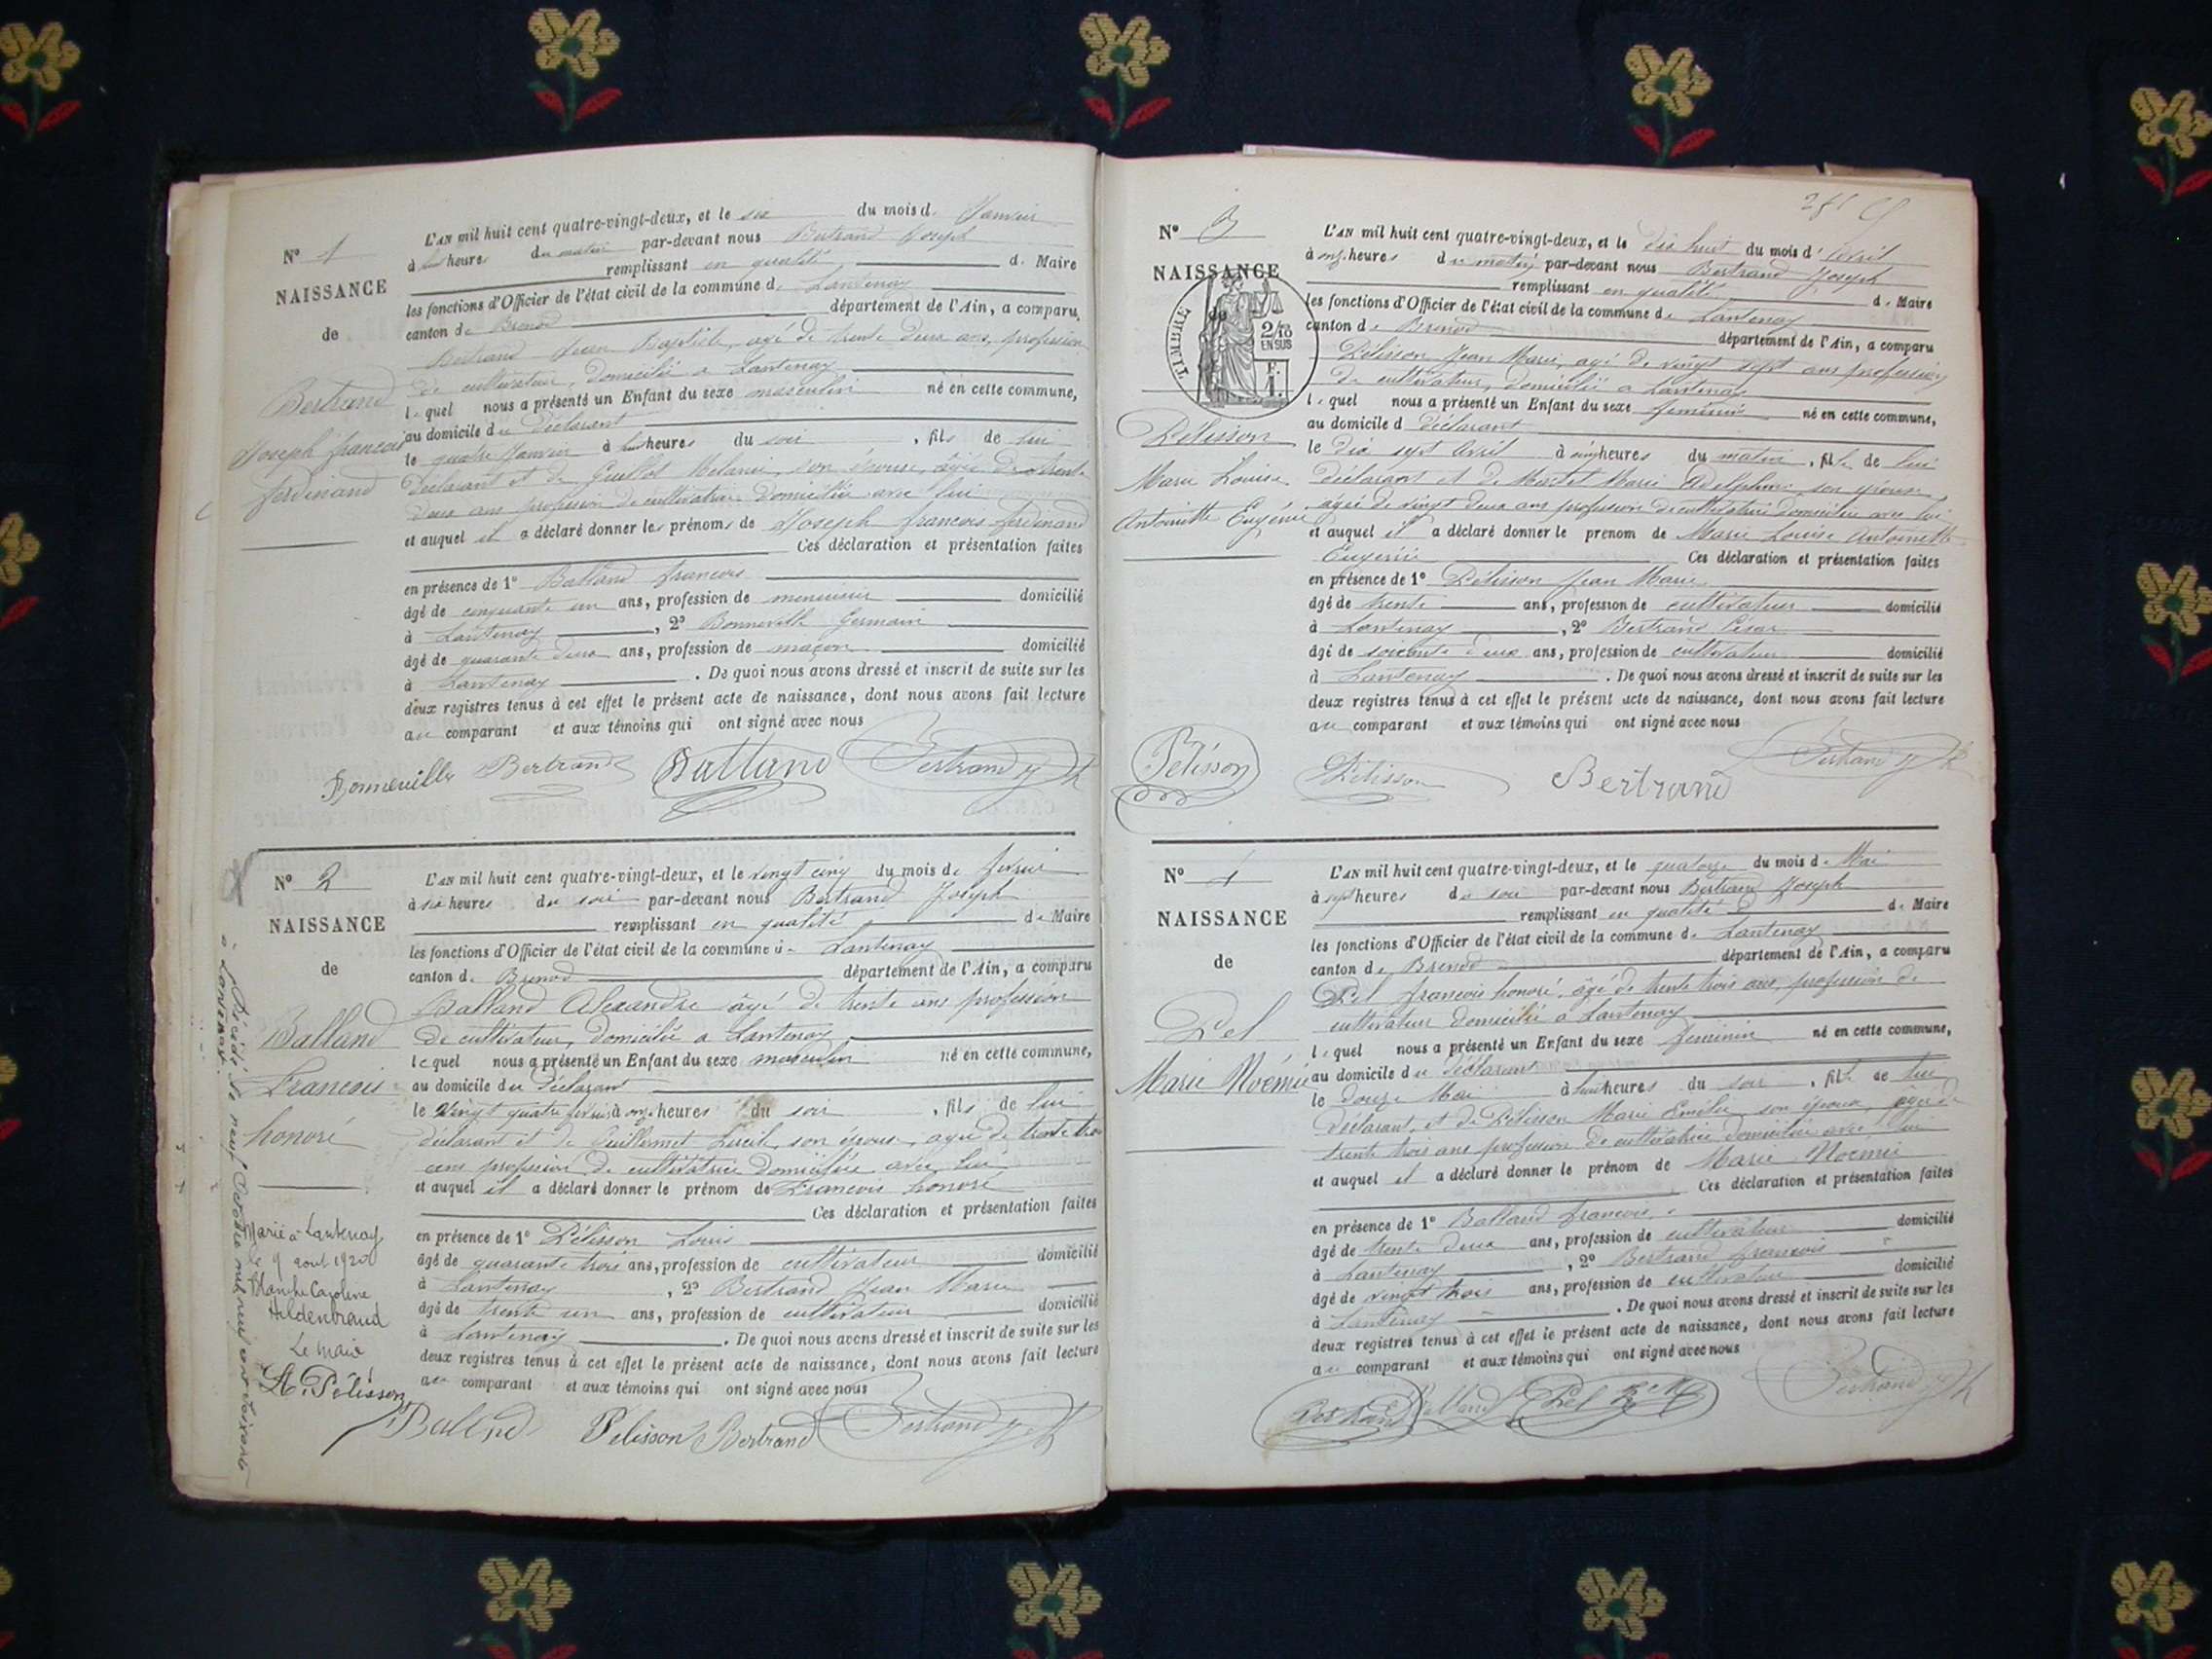 N° 1
NAISSANCE
de
Bertrand
Joseph francois
ferdinand
L'AN mil huit cent quatre-vingt-deux, et le six du mois d. Janvier
à heures du matin par-devant nous Bertrand Joseph
remplissant en qualité d. Maire
les fonctions d'Officier de l'état civil de la commune d. Lantenay
canton de Brenod département de l'Ain, a comparu
Bertrand Jean Baptiste, agé de trente deux ans, profession
de cultivateur, domicilié a Lantenay
lequel nous a présenté un Enfant du sexe masculin né en cette commune,
au domicile du Déclarant
le quatre Janvier à heures du soir, fils de lui
Déclarant et de Guillot Melanie, son épouse, âgée de trente
deux ans profession de cultivatrice domiciliée avec lui
et auquel il a déclaré donner les prénoms de Joseph francois ferdinand
Ces déclaration et présentation faites
en présence de 1° Balland francois
âgé de cinquante un ans, profession de menuisier domicilié
à Lantenay, 2° Bonneville Germain
âgé de quarante deux ans, profession de maçon domicilié
à Lantenay. De quoi nous avons dressé et inscrit de suite sur les
deux registres tenus à cet effet le présent acte de naissance, dont nous avons fait lecture
au comparant et aux témoins qui ont signé avec nous
Bonneville Bertrand Balland Bertrand Jh
N° 2
NAISSANCE
de
Balland
Francois
honoré
Marié à Lantenay
le 9 aout 1920
Blanche Caroline
Hildenbrand
Le Maire
A. Pélisson
Décédé le neuf Octobre mil neuf cent soixante
à Lantenay.
L'AN mil huit cent quatre-vingt-deux, et le vingt cinq du mois de fevrier
à six heures du soir par-devant nous Bertrand Joseph
remplissant en qualité de Maire
les fonctions d'Officier de l'état civil de la commune d. Lantenay
canton d. Brenod département de l'Ain, a comparu
Balland Alexandre âgé de trente ans profession
de cultivateur, domicilié a Lantenay
lequel nous a présenté un Enfant du sexe masculin né en cette commune,
au domicile du Déclarant
le vingt quatre fevrier à onze heures du soir, fils de lui
déclarant et de Guillermet son épouse, agée de trente trois
ans profession de cultivatrice domiciliée avec lui
et auquel il a déclaré donner le prénom de Francois honoré
Ces déclaration et présentation faites
en présence de 1° Pélisson Louis
âgé de quarante trois ans, profession de cultivateur domicilié
à Lantenay, 2° Bertrand Jean Marie
âgé de trente un ans, profession de cultivateur domicilié
à Lantenay. De quoi nous avons dressé et inscrit de suite sur les
deux registres tenus à cet effet le présent acte de naissance, dont nous avons fait lecture
au comparant et aux témoins qui ont signé avec nous
Balland Pelisson Bertrand Bertrand Jh
N° 3
NAISSANCE
de
TIMBRE
2/10
EN SUS
F.
1.
Pélisson
Marie Louise
Antoinette Eugénie
L'AN mil huit cent quatre-vingt-deux, et le dix huit du mois d'Avril
à onze heures du matin par-devant nous Bertrand Joseph
remplissant en qualité de Maire
les fonctions d'Officier de l'état civil de la commune de Lantenay
canton de Brenod département de l'Ain, a comparu
Pélisson Jean Marie, agé de vingt sept ans profession
de cultivateur, domicilié a Lantenay
lequel nous a présenté un Enfant du sexe feminin né en cette commune,
au domicile d déclarant
le dix sept Avril à heures du matin, fille de lui
déclarant et de Marie Adelphine son épouse
agée de vingt deux ans profession de cultivatrice domiciliée avec lui
et auquel il a déclaré donner le prenom de Marie Louise Antoinette
Eugénie Ces déclaration et présentation faites
en présence de 1° Pélisson Jean Marie
âgé de trente ans, profession de cultivateur domicilié
à Lantenay, 2° Bertrand César
âgé de soixante deux ans, profession de cultivateur domicilié
à Lantenay. De quoi nous avons dressé et inscrit de suite sur les
deux registres tenus à cet effet le présent acte de naissance, dont nous avons fait lecture
au comparant et aux témoins qui ont signé avec nous
Pélisson Pélisson Bertrand Bertrand Jh
N° 4
NAISSANCE
de
Pel
Marie Noémie
L'AN mil huit cent quatre-vingt-deux, et le quatorze du mois de Mai
à sept heures du soir par-devant nous Bertrand Joseph
remplissant en qualité de Maire
les fonctions d'Officier de l'état civil de la commune d. Lantenay
canton de Brenod département de l'Ain, a comparu
Pel francois honoré, âgé de trente trois ans, profession de
cultivateur domicilié a Lantenay
lequel nous a présenté un Enfant du sexe feminin né en cette commune,
au domicile du Déclarant
le douze Mai à heures du soir, fille de lui
Déclarant, et de Pélisson Marie Emélie son épouse, agée de
trente trois ans profession de cultivatrice domiciliée avec lui
et auquel il a déclaré donner le prénom de Marie Noémie
Ces déclaration et présentation faites
en présence de 1° Balland francois,
âgé de trente deux ans, profession de cultivateur domicilié
à Lantenay, 2° Bertrand francois
âgé de vingt trois ans, profession de cultivateur domicilié
à Lantenay. De quoi nous avons dressé et inscrit de suite sur les
deux registres tenus à cet effet le présent acte de naissance, dont nous avons fait lecture
au comparant et aux témoins qui ont signé avec nous
Bertrand Balland Pel Bertrand Jh